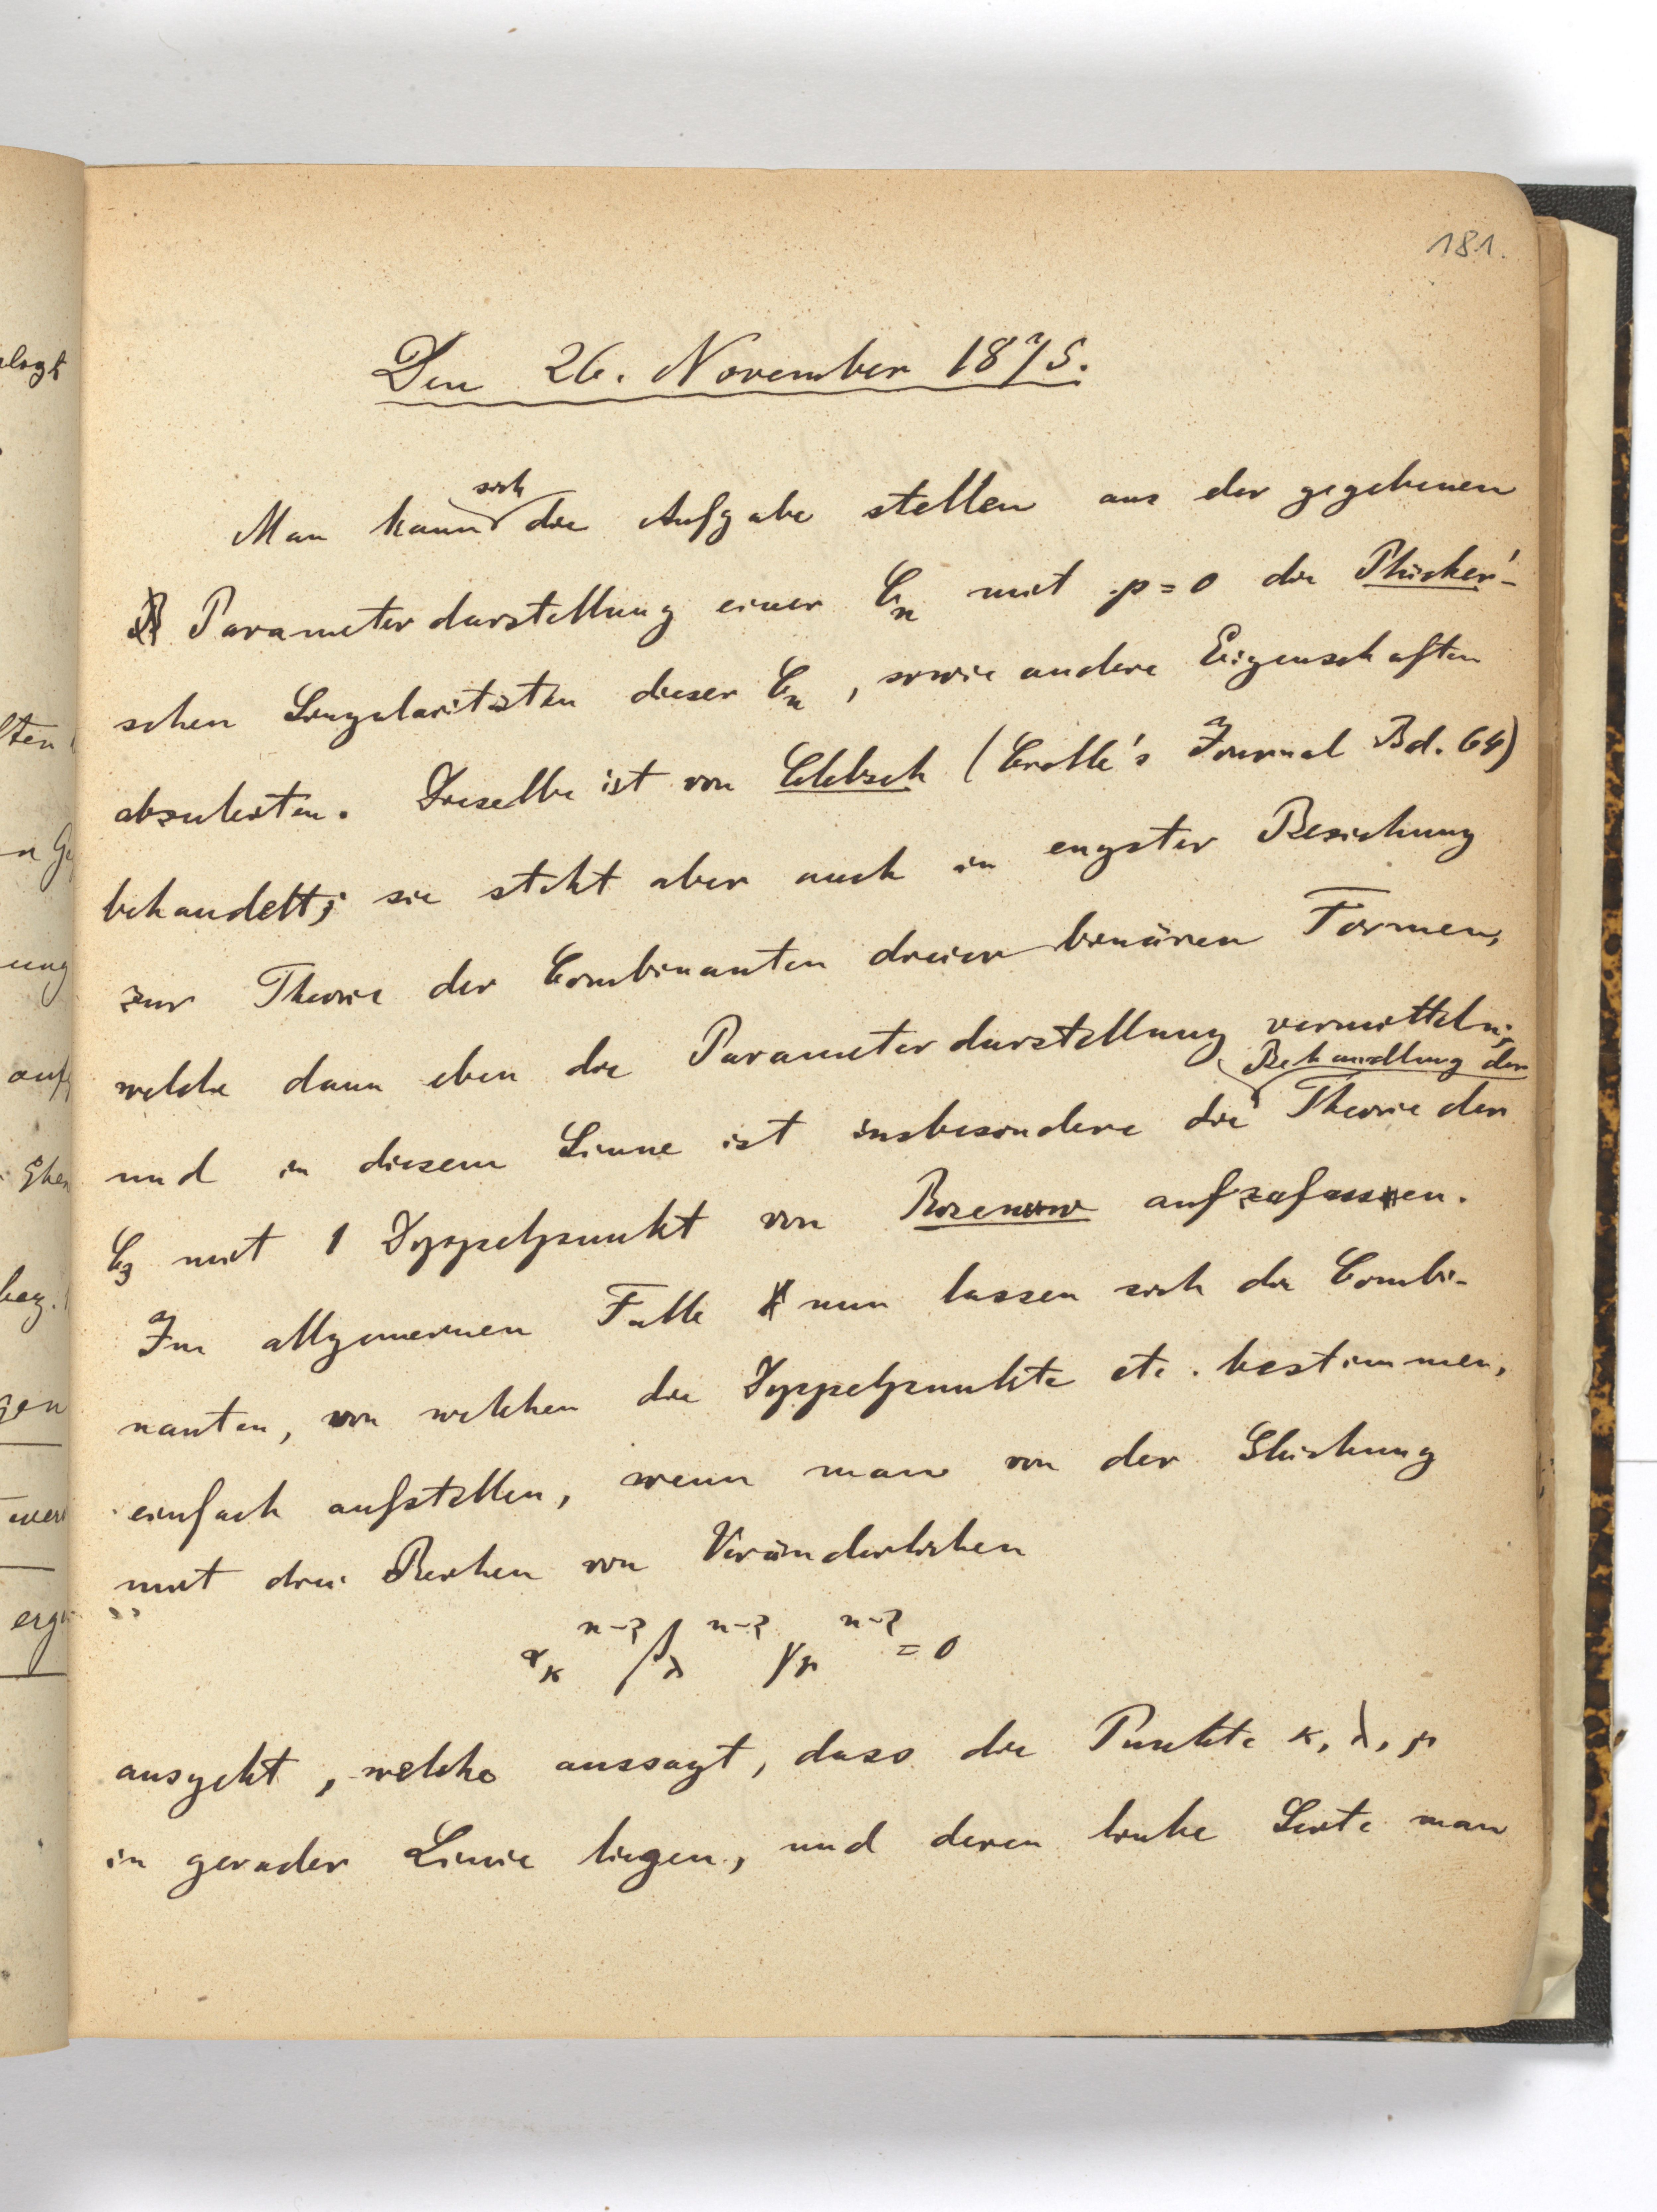 181.
Den 26. November 1875.
Man kann sich die Aufgabe stellen aus der gegebenen
Parameterdarstellung einer C_n mit p=0 die Plücker'-
schen Singularitäten dieser C_n, sowie andere Eigenschaften
abzuleiten. Dieselbe ist von Clebsch (Crelle's Journal Bd. 64)
behandelt; sie steht aber auch in engster Beziehung
zur Theorie der Combinanten dreier binären Formen,
welche dann eben die Parameterdarstellung vermitteln;
und in diesem Sinne ist insbesondere die Behandlung der Theorie der
C_3 mit 1 Doppelpunkt von Rosenow aufzufassen.
Im allgemeinen Falle nun lassen sich die Combi-
nanten, von welchen die Doppelpunkte etc. bestimmen,
einfach aufstellen, wenn man von der Gleichung
mit drei Reihen von Veränderlichen
α_κ^{n-2} β_λ^{n-2} γ_μ^{n-2} = 0
ausgeht, welche aussagt, dass die Punkte κ, λ, μ
in gerader Linie liegen, und deren linke Seite man